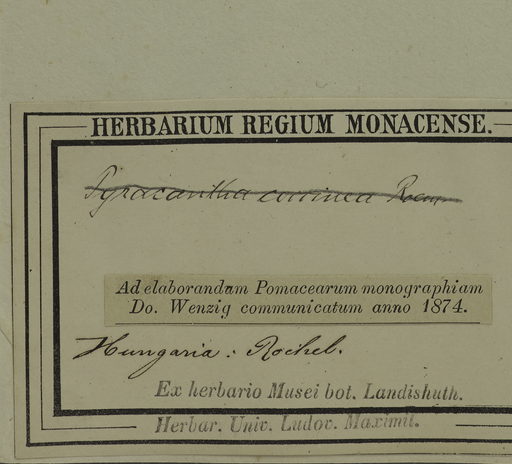 HERBARIUM REGIUM MONACENSE.
Pyracantha coccinea Roem
Ad elaborandam Pomacearum monographiam
Do. Wenzig communicatum anno 1874.
Hungaria: Rochel.
Ex herbario Musei bot. Landishuth.
Herbar. Univ. Ludov. Maximil.